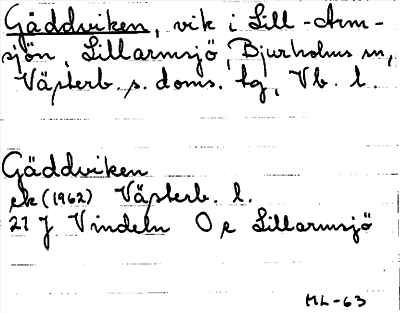 Gäddviken, vik i Lill-Arm-
sjön, Lillarmsjö, Bjurholms sn,
Västerb. s. doms. tg, Vb. l.
Gäddviken
ek (1962) Västerb. l.
21 J Vindeln 0 e Lillarmsjö
ML-63